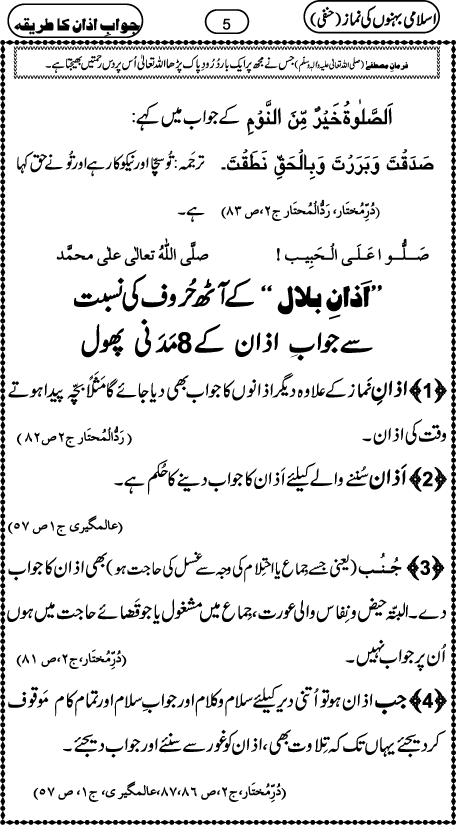 اسلامی بہنوں کی نماز (حنفی)
5
جوابِ اذان کا طریقہ
فرمانِ مصطفٰے (صلی اللہ تعالیٰ علیہ والہ وسلم) جس نے مجھ پر ایک بار دُرُودِ پاک پڑھا اللہ تعالیٰ اُس پر دس رحمتیں بھیجتا ہے۔
اَلصَّلٰوۃُ خَیْرٌ مِّنَ النَّوْمِ کے جواب میں کہے:
صَدَقْتَ وَبَرَرْتَ وَبِالْحَقِّ نَطَقْتَ۔ ترجَمہ: تُو سچّا اور نیکوکار ہے اور تُو نے حق کہا
ہے۔ (دُرِّمُختار، رَدُّالْمُحتار ج۲، ص ۸۳)
صَلُّوا عَلَی الْحَبِیب! صلَّی اللہُ تعالٰی علٰی محمَّد
”اَذانِ بلال“ کے آٹھ حُروف کی نسبت
سے جوابِ اذان کے 8 مَدَنی پھول
﴿1﴾ اذانِ نَماز کے علاوہ دیگر اذانوں کا جواب بھی دیا جائے گا مَثَلاً بچّہ پیدا ہوتے
وقت کی اذان۔ (رَدُّالْمُحتار ج۲ ص۸۲)
﴿2﴾ اَذان سُننے والے کیلئے اَذان کا جواب دینے کا حُکم ہے۔
(عالمگیری ج۱ ص ۵۷)
﴿3﴾ جُنُب (یعنی جسے جِماع یا احتِلام کی وجہ سے غسل کی حاجت ہو) بھی اذان کا جواب
دے۔ البتّہ حیض و نِفاس والی عورت، جِماع میں مشغول یا جو قَضائے حاجت میں ہوں
اُن پر جواب نہیں۔ (دُرِّمُختار، ج۲، ص ۸۱)
﴿4﴾ جب اذان ہو تو اُتنی دیر کیلئے سلام و کلام اور جوابِ سلام اور تمام کام مَوقوف
کر دیجئے یہاں تک کہ تِلاوت بھی، اذان کو غور سے سنئے اور جواب دیجئے۔
(دُرِّمُختار، ج۲، ص ۸۶،۸۷، عالمگیری، ج۱، ص ۵۷)